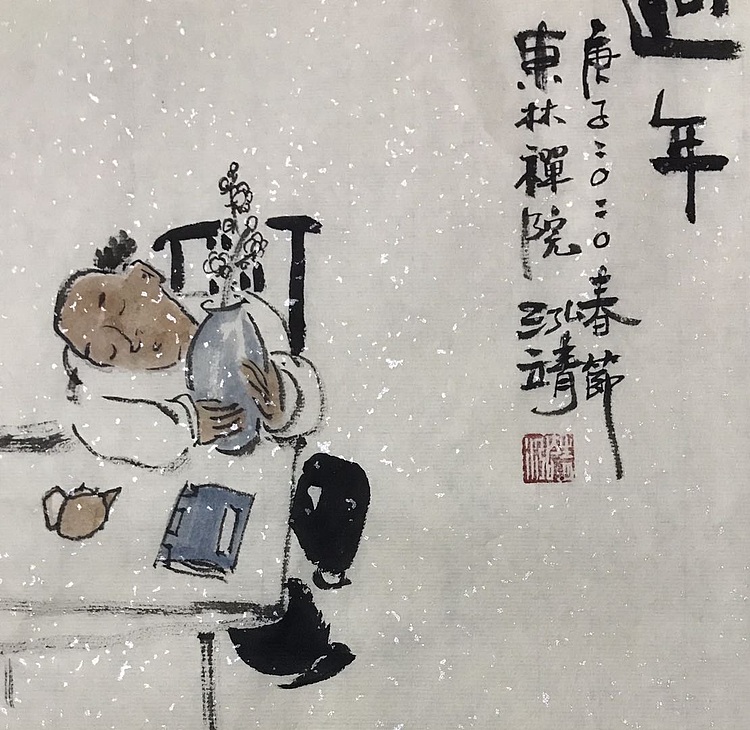 過年
庚子二〇二〇春節
東林禪院泓靖